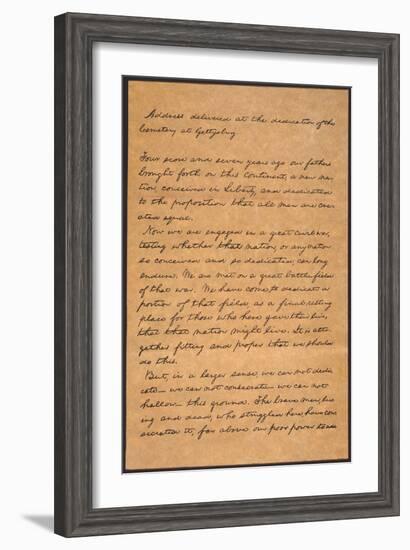 Address delivered at the dedication of the
Cemetery at Gettysburg
Four score and seven years ago our fathers
brought forth on this continent, a new na-
tion, conceived in Liberty, and dedicated
to the proposition that all men are cre-
ated equal.
Now we are engaged in a great civil war,
testing whether that nation, or any nation
so conceived and so dedicated, can long
endure. We are met on a great battle-field
of that war. We have come to dedicate a
portion of that field, as a final resting
place for those who here gave their lives,
that that nation might live. It is alto-
gether fitting and proper that we should
do this.
But, in a larger sense, we can not dedi-
cate — we can not consecrate — we can not
hallow — this ground. The brave men, liv-
ing and dead, who struggled here, have con-
secrated it, far above our poor power to add